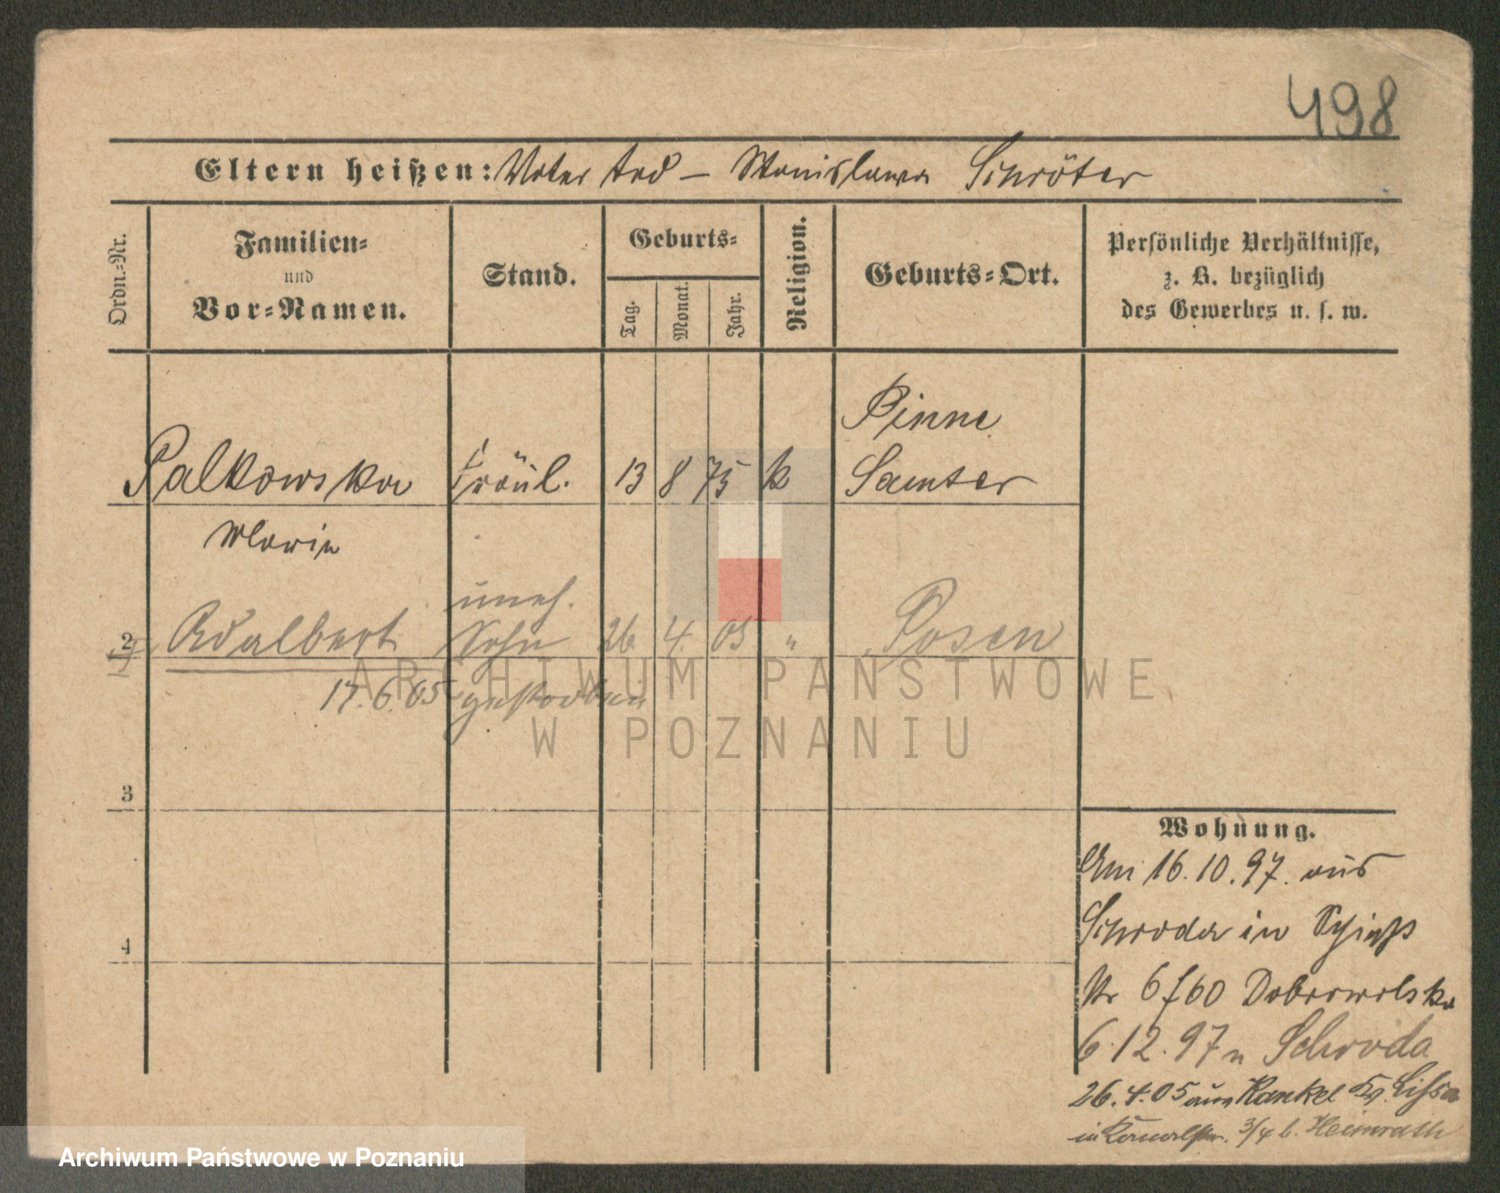 498
Eltern heißen: Vater tod – Stanislawa Schröter
Ordn.-Nr.
Familien-
und
Vor-Namen.
Stand.
Geburts-
Tag.
Monat.
Jahr.
Religion.
Geburts-Ort.
Persönliche Verhältnisse,
z. B. bezüglich
des Gewerbes u. s. w.
Pinne
Palkowska Fräul. 13 8 75 k Samter
Marie
uneh.
2 Adalbert Sohn 26 4. 05 " Posen
17.6.05 gestorben
3
4
Wohnung.
Am 16.10.97. aus
Schroda in
Nr 6 f 60 Dobrowolska
6.12.97 n Schroda
26.4.05 aus Kankel Kr. Lissa
in 3/4 b. Heimrath
ARCHIWUM PAŃSTWOWE
W POZNANIU
Archiwum Państwowe w Poznaniu